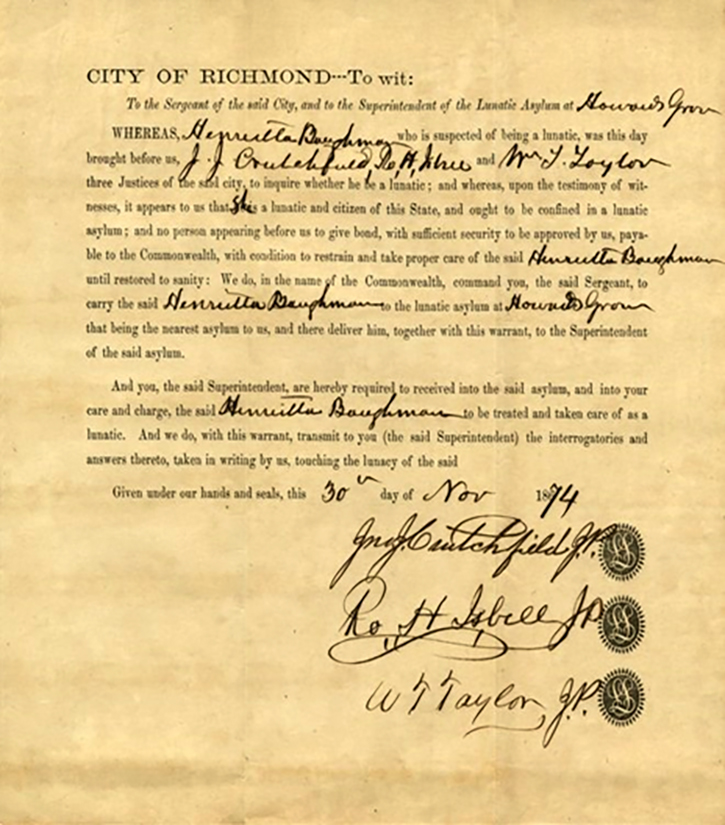 CITY OF RICHMOND---To wit:
To the Sergeant of the said City, and to the Superintendent of the Lunatic Asylum at Howards Grove
WHEREAS, Henrietta Baughman who is suspected of being a lunatic, was this day
brought before us, J. J. Crutchfield, Ro, H, Isbell and Wm T. Taylor
three Justices of the said city, to inquire whether he be a lunatic; and whereas, upon the testimony of wit-
nesses, it appears to us that she is a lunatic and citizen of this State, and ought to be confined in a lunatic
asylum; and no person appearing before us to give bond, with sufficient security to be approved by us, paya-
ble to the Commonwealth, with condition to restrain and take proper care of the said Henrietta Baughman
until restored to sanity: We do, in the name of the Commonwealth, command you, the said Sergeant, to
carry the said Henrietta Baughman to the lunatic asylum at Howards Grove
that being the nearest asylum to us, and there deliver him, together with this warrant, to the Superintendent
of the said asylum.
And you, the said Superintendent, are hereby required to received into the said asylum, and into your
care and charge, the said Henrietta Baughman to be treated and taken care of as a
lunatic. And we do, with this warrant, transmit to you (the said Superintendent) the interrogatories and
answers thereto, taken in writing by us, touching the lunacy of the said
Given under our hands and seals, this 30th day of Nov 1874
Jno J. Crutchfield J.P.
Ro, H Isbell JP
W T Taylor, J.P.